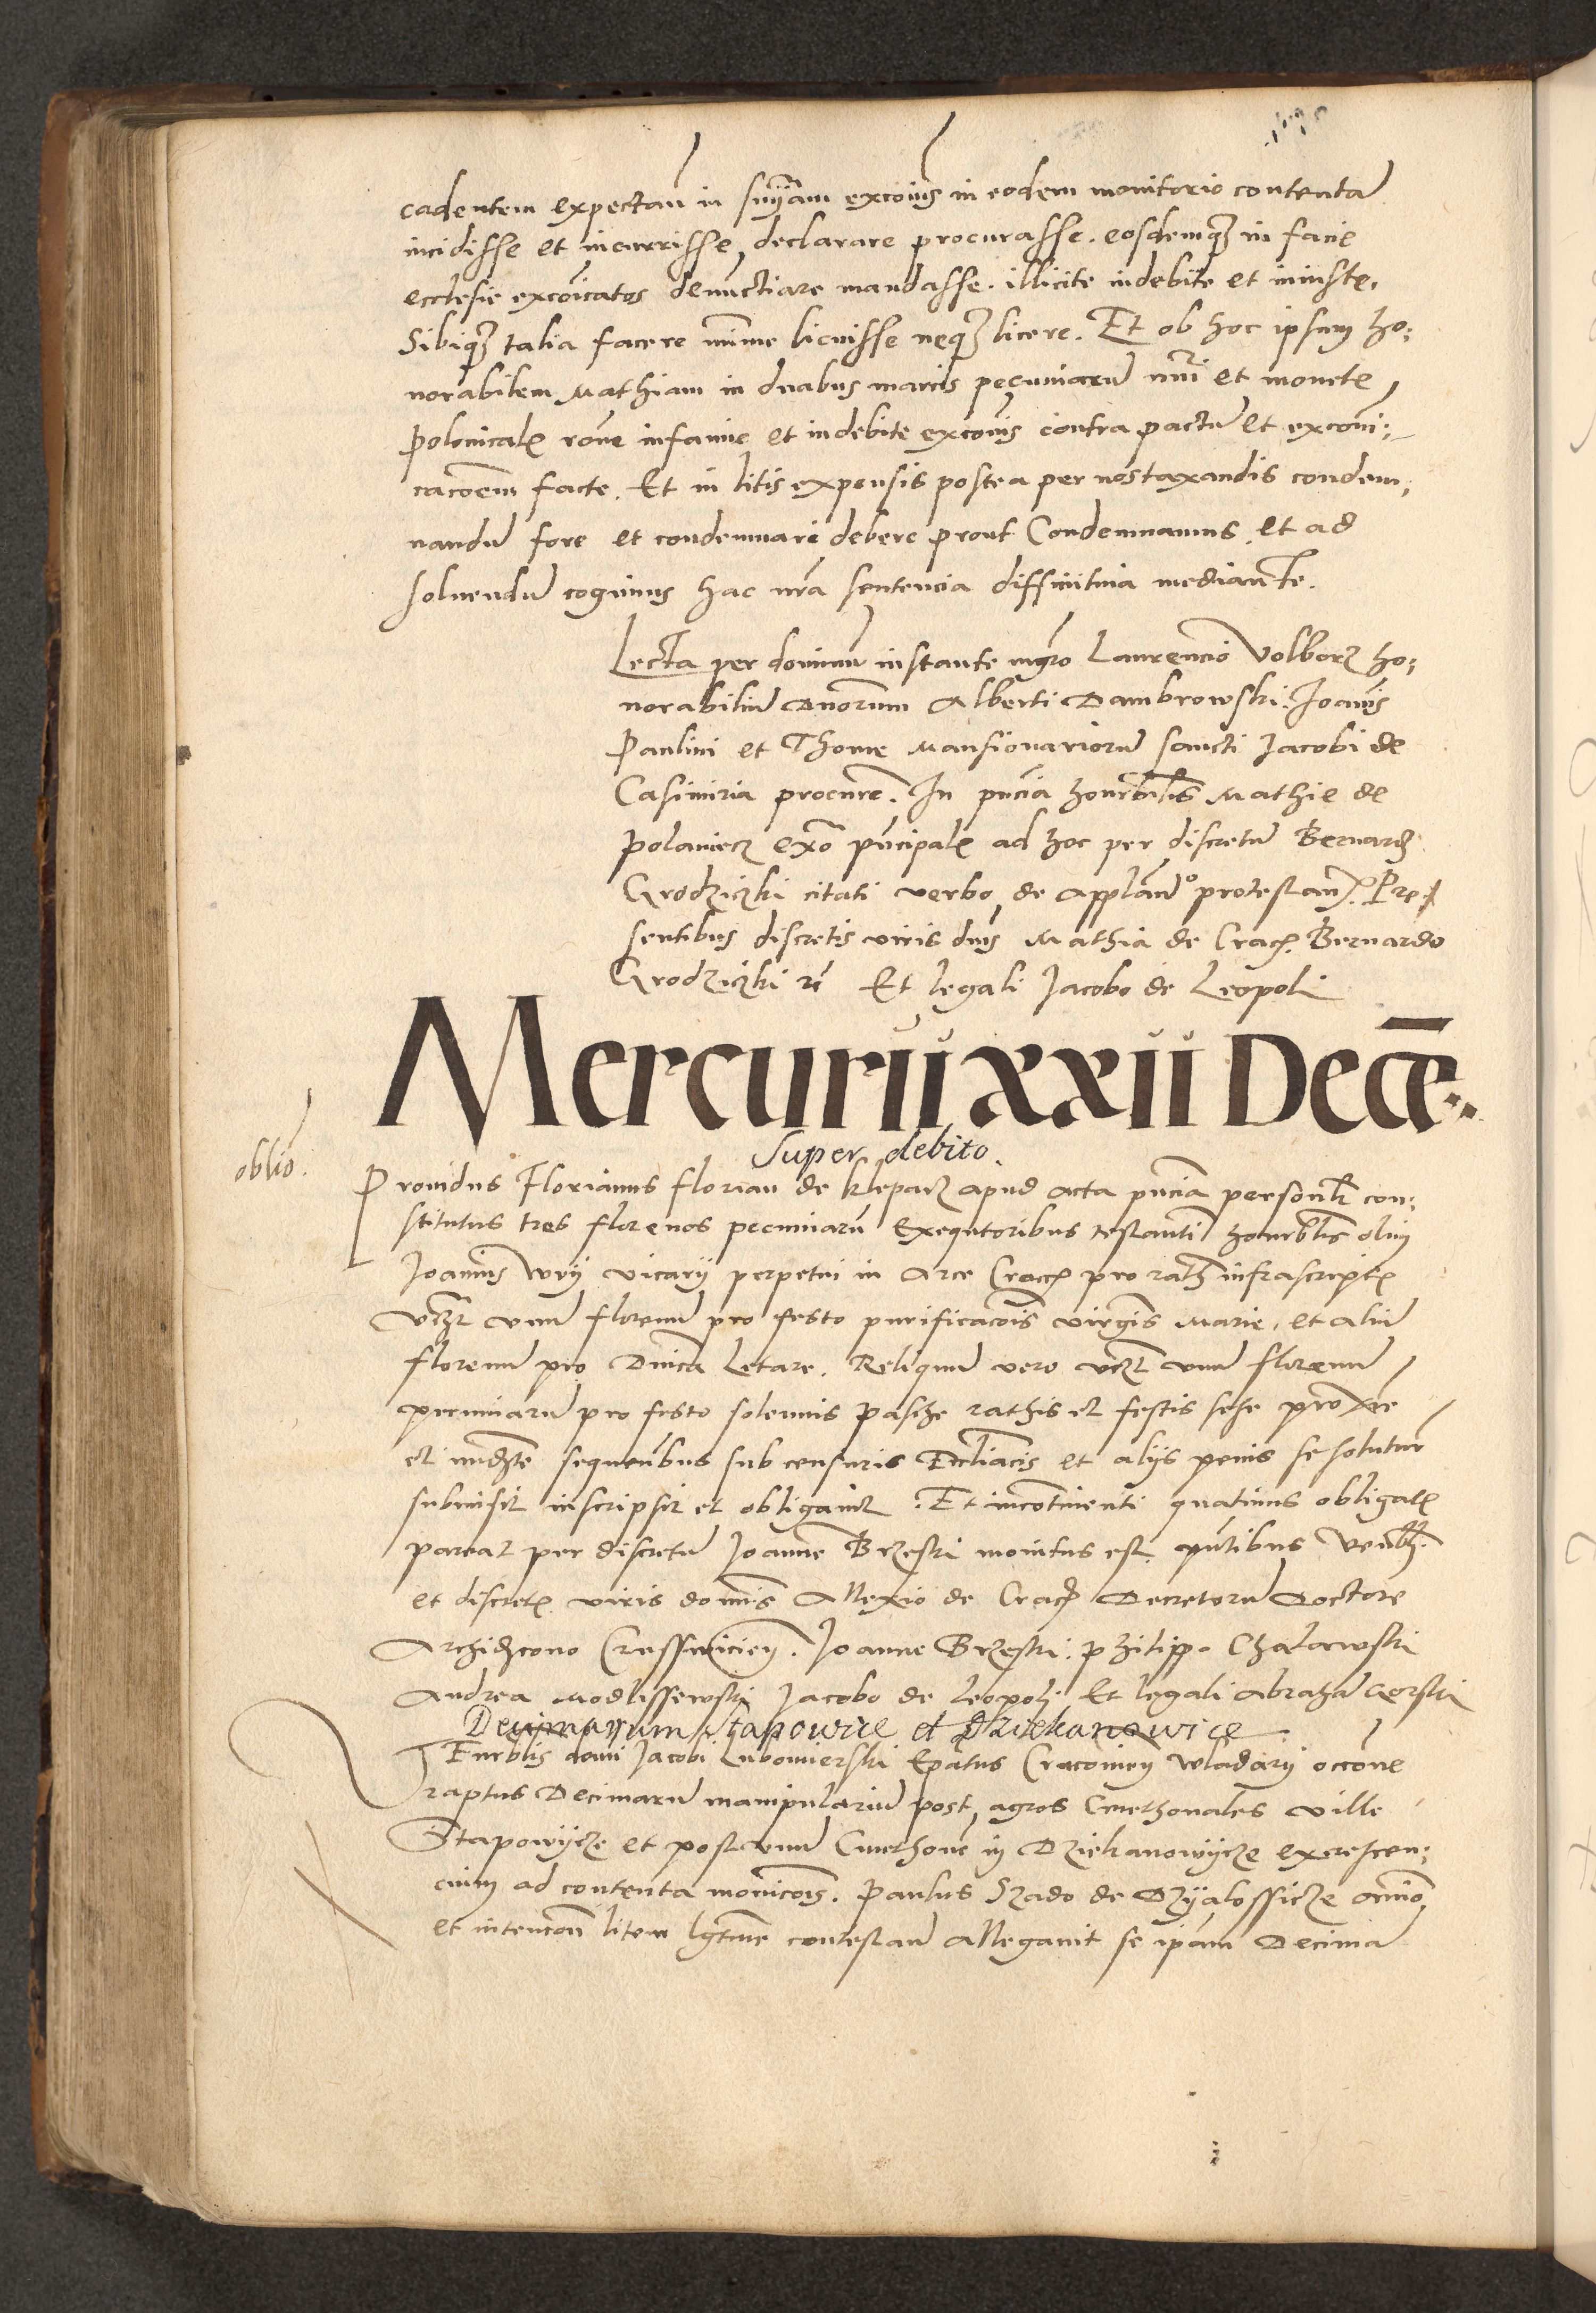 cadentem expectan in snĩam excoĩs in eodem monitorio contentã
incidisse et incurrisse, declarare procurasse. eosdemqȝ in facie
ecclesie excoĩcatos denunctiare mandasse. illicite indebite et iniuste.
Sibiqȝ talia facere minime licuisse neqȝ licere. Et ob hoc ipsum ho:
norabilem Mathiam in duabus marcis pecuniarũ nũi et monete
polonicalĩ rõne infamie et indebite excoĩs contra pactũ et excoĩ:
cacõem facte. Et in litis expensis postea per nos taxandis condem:
nandũ fore et condemnari debere prout Condemnamus. et ad
soluendũ cogimus hac nrã sentencia diffinitiua mediante.
Lecta per dominum instante mgrõ Laurencio Volborȝ ho:
norabiliũ dnõrum Alberti Dambrowski. Joannis
Paulini et Thome Mansionariorũ sancti Jacobi de
Casimiria procure. In pnĩa honorabilis Mathie de
polaniecȝ exõ principalĩ ad hoc per discretũ Bernardȝ
Grodziczki citati verbo de applando protestan. Pre
sentibus discretis viris dnĩs Mathia de Cracȝ. Bernardo
Grodziczki Et legali Jacobo de Leopoli
Mercurii xxii Decẽ
Super debito.
oblio.
Prouidus Florianus florian de kleparȝ apud acta pncĩa personlr con:
stitutus tres florenos pecuniarũ exequtoribus testamtĩ honorblis olim
Joannis wrij vicarij perpetui in Arce Cracȝ pro rathȝ infrascriptȝ
vcȝt unũ florenũ pro festo purificacõis virgĩs Marie, et aliũ
florenũ pro Dnĩca Letare. Reliquũ vero vcȝt unũ florenũ
pecuniarũ pro festo solennis Pasche rathis et festis sese proxĩe
et imĩdte sequentibus sub censuris Eccliacĩs et alijs penis se solutur
submisit inscripsit et obligauit. Et incontinenti quatinus obligatȝ
pareat per discretũ Joannẽ Brzeski monitus est. pntibus Venblȝ
et discretȝ viris domĩs Allexio de Cracȝ Decretorũ Doctore
Archidcono Crussuicien. Joanne Brzeski. philippo Chalawski
Andrea Modlissewski Jacobo de Leopolȝ Et legali Abrahã Gorski
Decimarum Stapowice et Dziekanowice
Venrblis domĩ Jacobi Lubomierski Epatus Cracouien wladarij occõne
raptus Decimarũ manipulariũ post agros Cmethonales ville
Stapowijcze et post unũ Cmethonẽ in Dziekanowijcze excrescen:
cium ad contenta monicõis. Paulus Szado de Dzijalossicze animo
et intencõn litem lgtme contestan Allegauit se ipsam Decimã